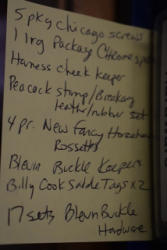 5 pkg chicago screw
1 lrg Package Chrome spots
Harness cheek Keeper
Peacock stamp/Breakaway
leather/rubber set
4 pr. New Fancy Horsehead
Rossetts
Blevin Buckle Keepers
Billy Cook Saddle Tags x 2
17 sets Blevin Buckle
Hardware